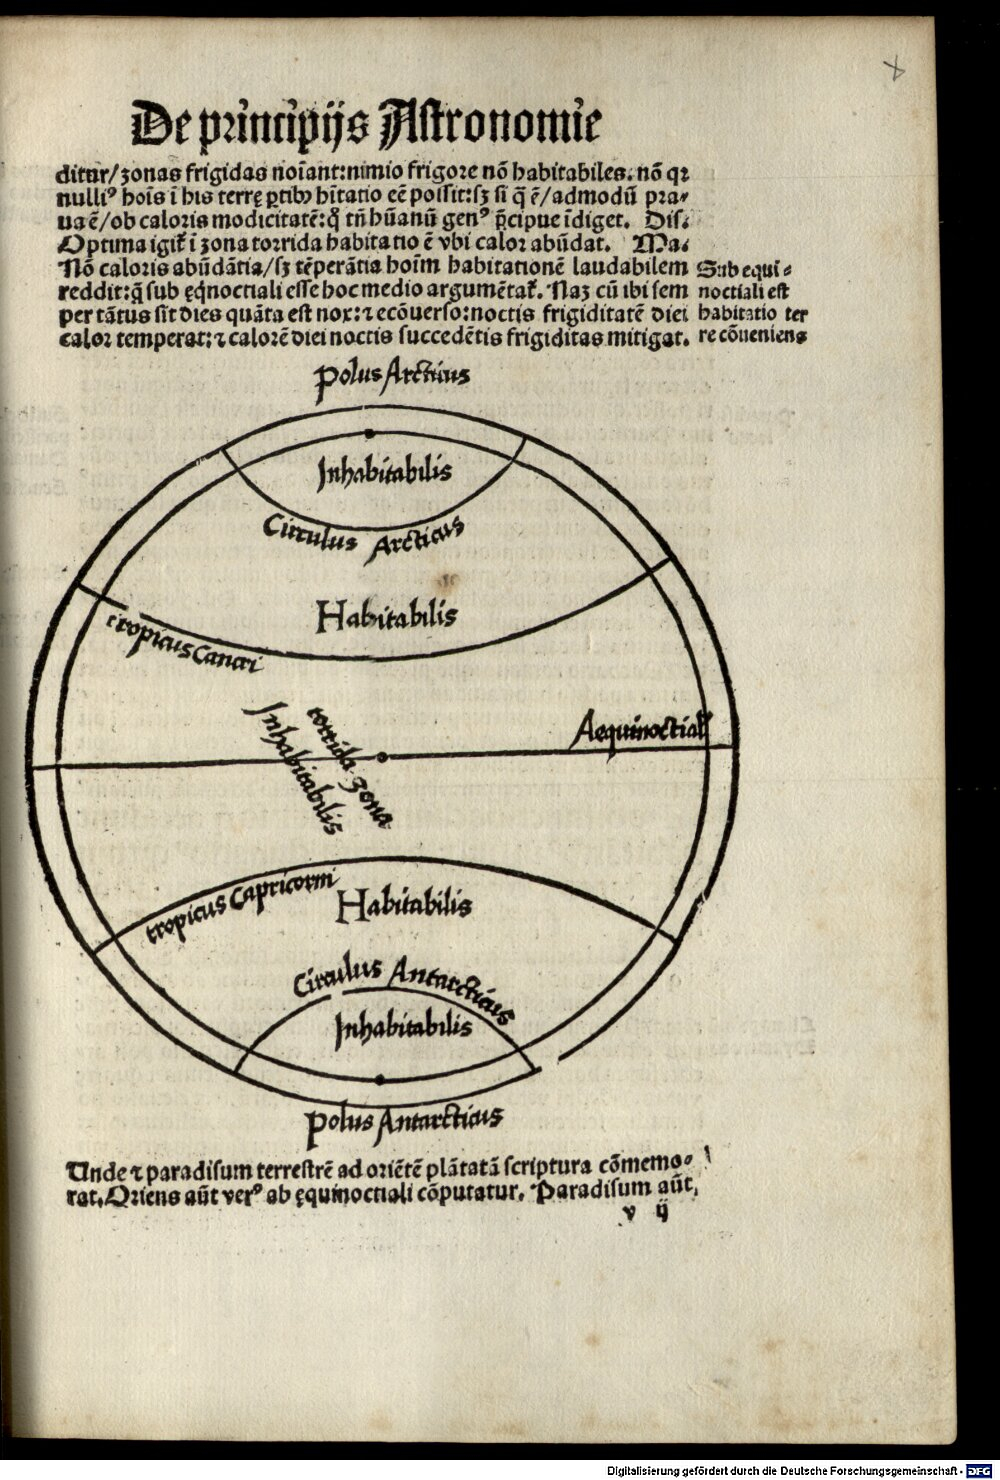 De principijs Astronomie
ditur/ zonas frigidas noīant: nimio frigore nō habitabiles. nō qꝛ
nulliꝰ hoīs ī his terrę ꝑtibꝰ hītatio eē possit: sꝫ si q̄ ē/ admodū pra⸗
ua ē/ ob caloris modicitatē: q̄ tn̄ hūanū genꝰ p̄cipue īdiget. Dis.
Optima igit̄ ī zona torrida habitatio ē vbi calor abūdat. Ma.
Nō caloris abūdātia/ sꝫ tēperātia hoīm habitationē laudabilem
reddit: q̄ sub ęq̄noctiali esse hoc medio argumētat̄. Naꝫ cū ibi sem
per tātus sit dies quāta est nox: ⁊ ecōuerso: noctis frigiditatē diei
calor temperat: ⁊ calorē diei noctis succedētis frigiditas mitigat.
Sub equi⸗
noctiali est
habitatio ter
re cōueniens
Polus Arcticus
Inhabitabilis
Circulus Arcticus
Habitabilis
tropicus Cancri
torrida zona
Inhabitabilis
Aequinoctial'
tropicus Capricorni
Habitabilis
Circulus Antarcticus
Inhabitabilis
Polus Antarcticus
Unde ⁊ paradisum terrestrē ad oriētē plātatā scriptura cōmemo⸗
rat. Oriens aūt verꝰ ab ęquinoctiali cōputatur. Paradisum aūt
v ij
Digitalisierung gefördert durch die Deutsche Forschungsgemeinschaft - DFG